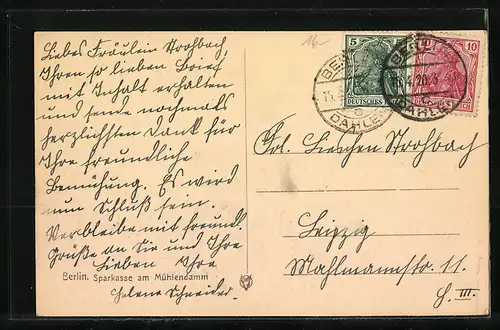 Liebes Fräulein Strohbach,
Ihren so lieben Brief
mit Inhalt erhalten
und sende nochmals
herzlichsten Dank für
Ihre freundliche
Bemühung. Es wird
nun Schluß sein.
Verbleibe mit freundl.
Grüße an Sie und Ihre
Lieben Ihre
Berlin. Sparkasse am Mühlendamm
Helene Schneider.
5
DEUTSCHES
10
BERLIN
DAHLEM
15.4.20.
BERLIN
DAHLEM
Frl. Lieschen Strohbach
Leipzig
Mahlmannstr. 11.
H. III.